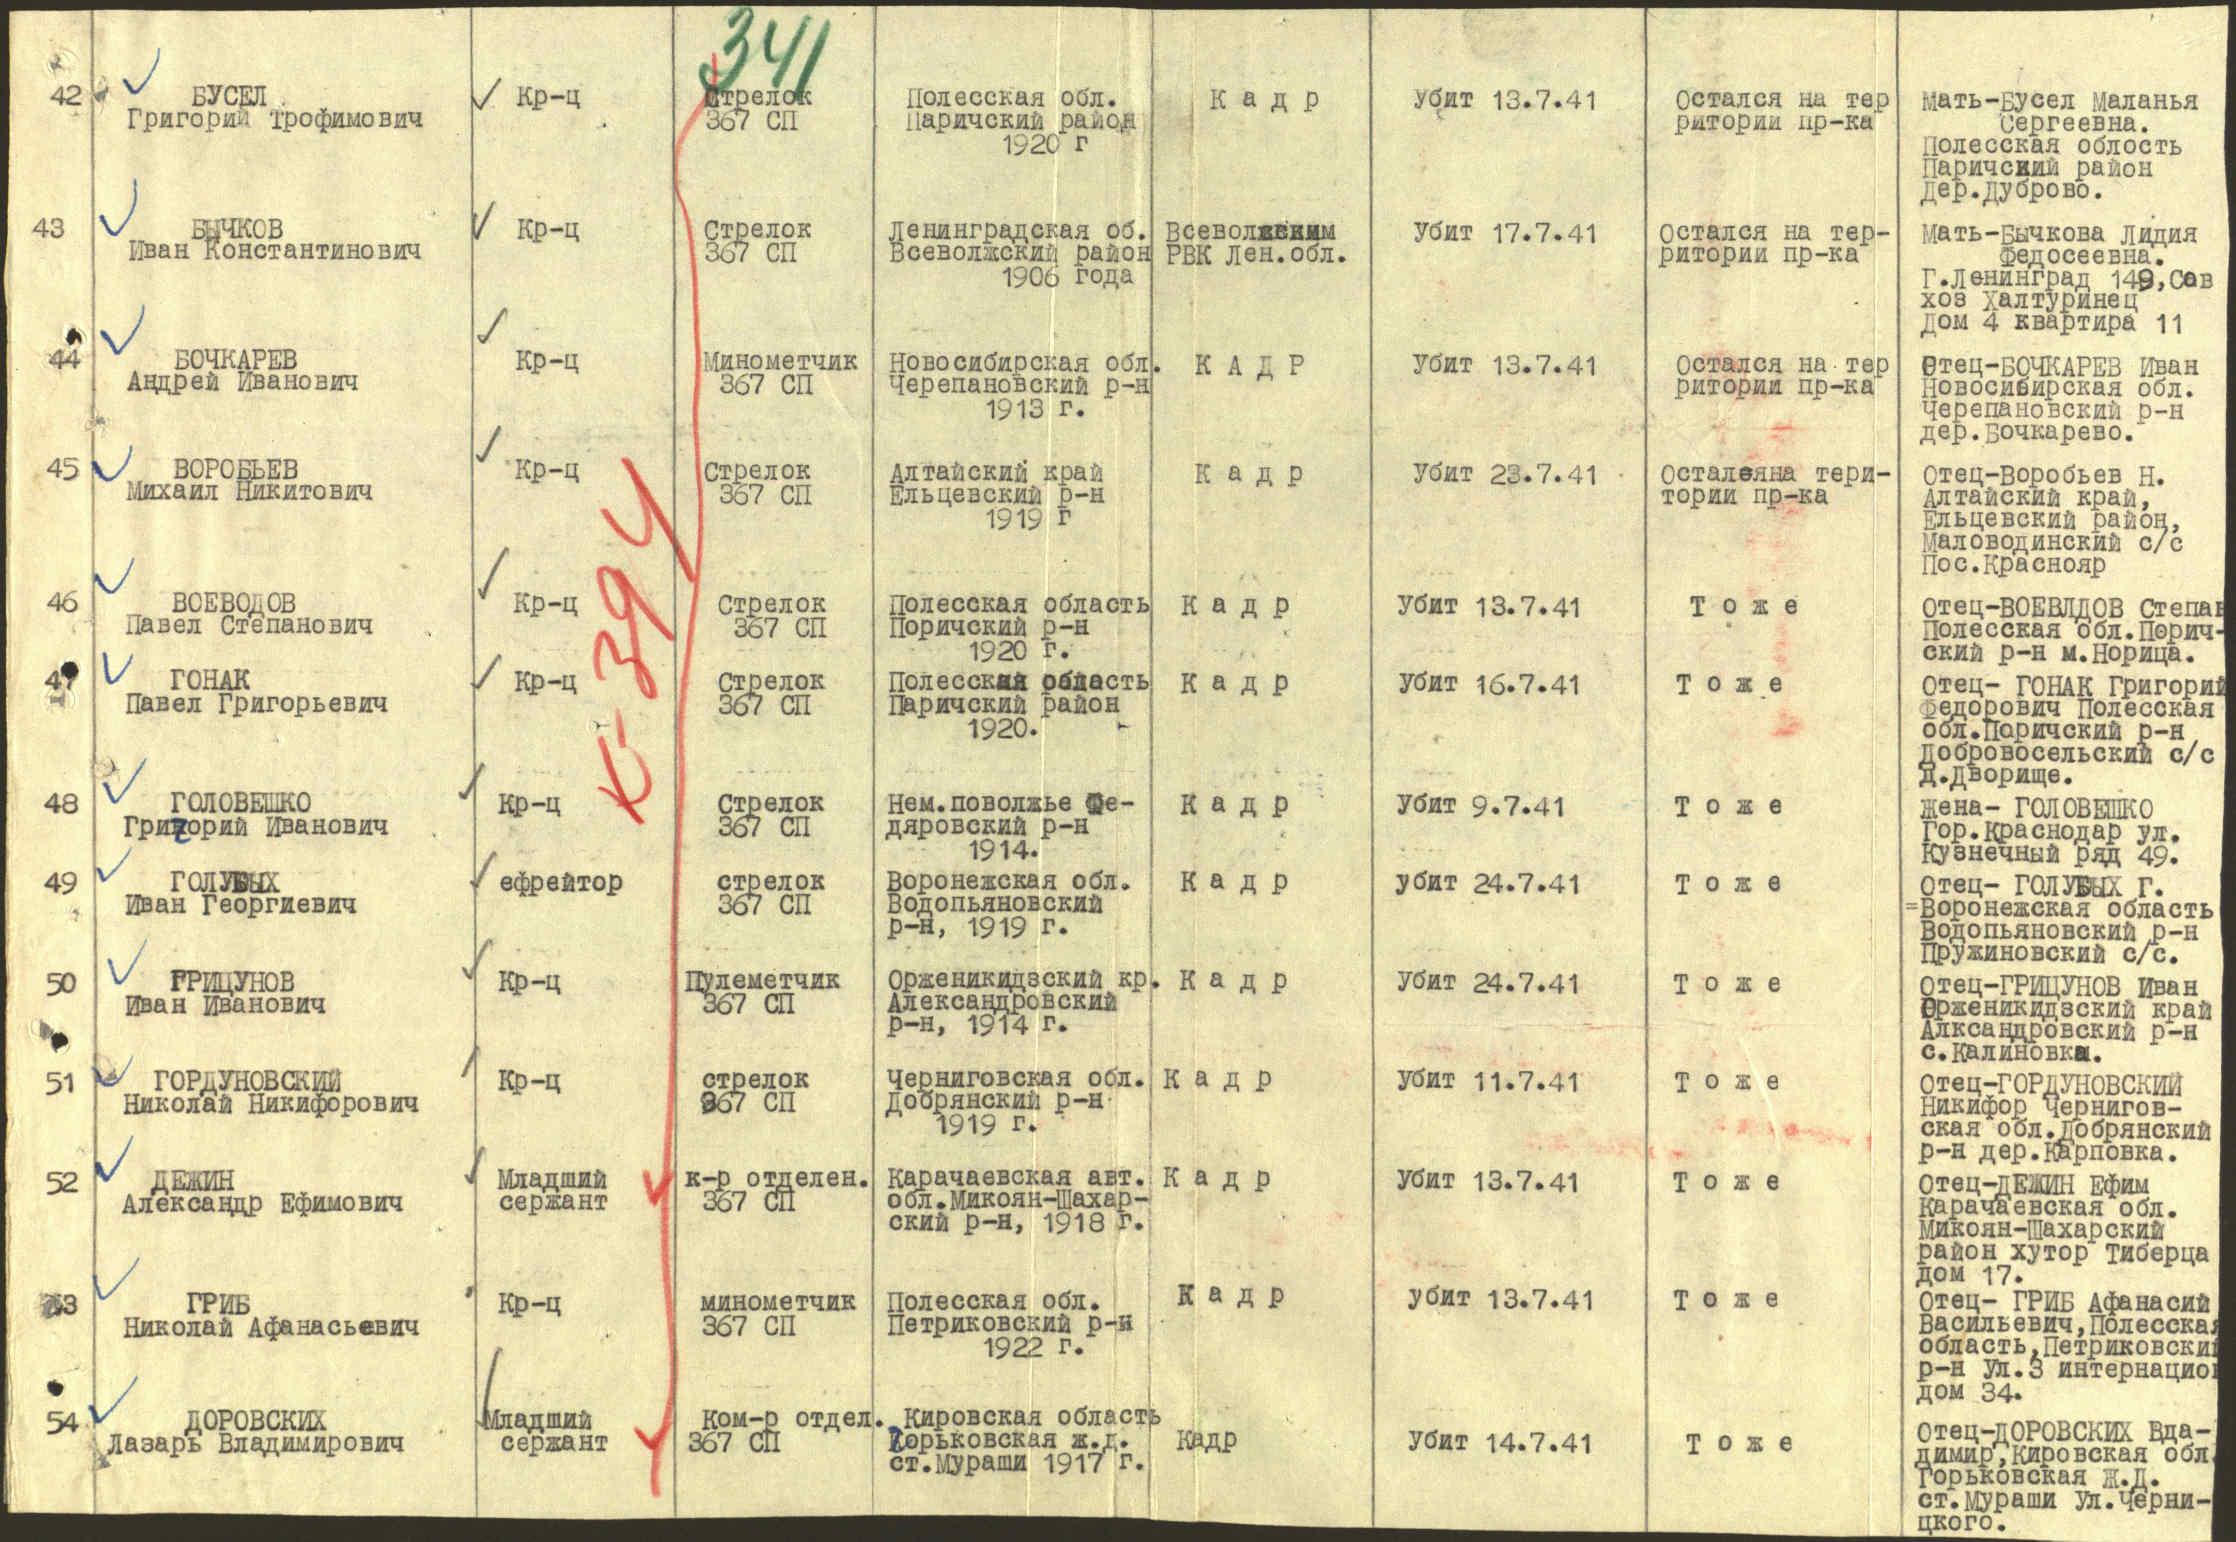 341
42 БУСЕЛ Кр-ц Стрелок Полесская обл. К а д р Убит 13.7.41 Остался на тер Мать-Бусел Маланья
Григорий Трофимович 367 СП Паричский район ритории пр-ка Сергеевна.
1920 г Полесская облость
Паричский район
дер.Дуброво.
43 БЫЧКОВ Кр-ц Стрелок Ленинградская об. Всеволжским Убит 17.7.41 Остался на тер- Мать-Бычкова Лидия
Иван Константинович 367 СП Всеволжский район РВК Лен.обл. ритории пр-ка Федосеевна.
1906 года Г.Ленинград 149,Сов
хоз Халтуринец
Дом 4 квартира 11
44 БОЧКАРЕВ Кр-ц Минометчик Новосибирская обл. К А Д Р Убит 13.7.41 Остался на тер Отец-БОЧКАРЕВ Иван
Андрей Иванович 367 СП Черепановский р-н ритории пр-ка Новосибирская обл.
1913 г. Черепановский р-н
дер.Бочкарево.
45 ВОРОБЬЕВ Кр-ц Стрелок Алтайский край К а д р Убит 23.7.41 Осталсяна тери- Отец-Воробьев Н.
Михаил Никитович 367 СП Ельцевский р-н тории пр-ка Алтайский край,
1919 г Ельцевский район,
Маловодинский с/с
Пос.Краснояр
46 ВОЕВОДОВ Кр-ц Стрелок Полесская область К а д р Убит 13.7.41 Т о ж е Отец-ВОЕВЛДОВ Степан
Павел Степанович 367 СП Поричский р-н Полесская обл.Порич-
1920 г. ский р-н м.Норица.
47 ГОНАК Кр-ц Стрелок Полесская область К а д р Убит 16.7.41 Т о ж е Отец- ГОНАК Григорий
Павел Григорьевич 367 СП Паричский район Федорович Полесская
1920. обл.Паричский р-н
Добровосельский с/с
д.Дворище.
К-394
48 ГОЛОВЕШКО Кр-ц Стрелок Нем.поволжье Фе- К а д р Убит 9.7.41 Т о ж е Жена- ГОЛОВЕШКО
Григорий Иванович 367 СП дяровский р-н Гор.Краснодар ул.
1914. Кузнечный ряд 49.
49 ГОЛУБЫХ ефрейтор стрелок Воронежская обл. К а д р убит 24.7.41 Т о ж е Отец- ГОЛУБЫХ Г.
Иван Георгиевич 367 СП Водопьяновский =Воронежская область
р-н, 1919 г. Водопьяновский р-н
Пружиновский с/с.
50 ГРИЦУНОВ Кр-ц Пулеметчик Орженикидзский кр. К а д р Убит 24.7.41 Т о ж е Отец-ГРИЦУНОВ Иван
Иван Иванович 367 СП Александровский Орженикидзский край
р-н, 1914 г. Алксандровский р-н
с.Калиновка.
51 ГОРДУНОВСКИЙ Кр-ц стрелок Черниговская обл. К а д р Убит 11.7.41 Т о ж е Отец-ГОРДУНОВСКИЙ
Николай Никифорович 367 СП Добрянский р-н Никифор Чернигов-
1919 г. ская обл.Добрянский
р-н дер.Карповка.
52 ДЕЖИН Младший к-р отделен. Карачаевская авт. К а д р Убит 13.7.41 Т о ж е Отец-ДЕЖИН Ефим
Александр Ефимович сержант 367 СП обл.Микоян-Шахар- Карачаевская обл.
ский р-н, 1918 г. Микоян-Шахарский
район хутор Тиберца
дом 17.
53 ГРИБ Кр-ц минометчик Полесская обл. К а д р убит 13.7.41 Т о ж е Отец- ГРИБ Афанасий
Николай Афанасьевич 367 СП Петриковский р-н Васильевич,Полесская
1922 г. область,Петриковский
р-н Ул.3 интернацион
дом 34.
54 ДОРОВСКИХ Младший Ком-р отдел. Кировская область Кадр Убит 14.7.41 Т о ж е Отец-ДОРОВСКИХ Вда-
Лазарь Владимирович сержант 367 СП Горьковская ж.д. димир,Кировская обл.
ст.Мураши 1917 г. Горьковская Ж.Д.
ст.Мураши Ул.Черни-
цкого.